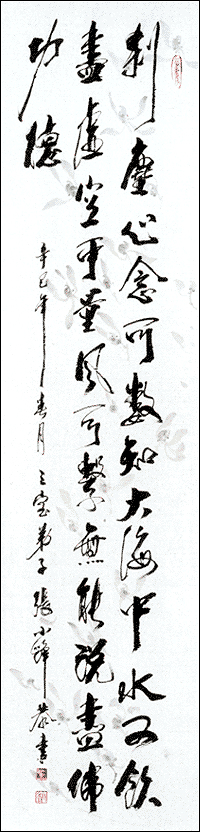 刹塵心念可數知大海中水可飲
盡虛空可量風可繫無能說盡佛
功德
辛巳年春月三寶弟子張小鋒恭書